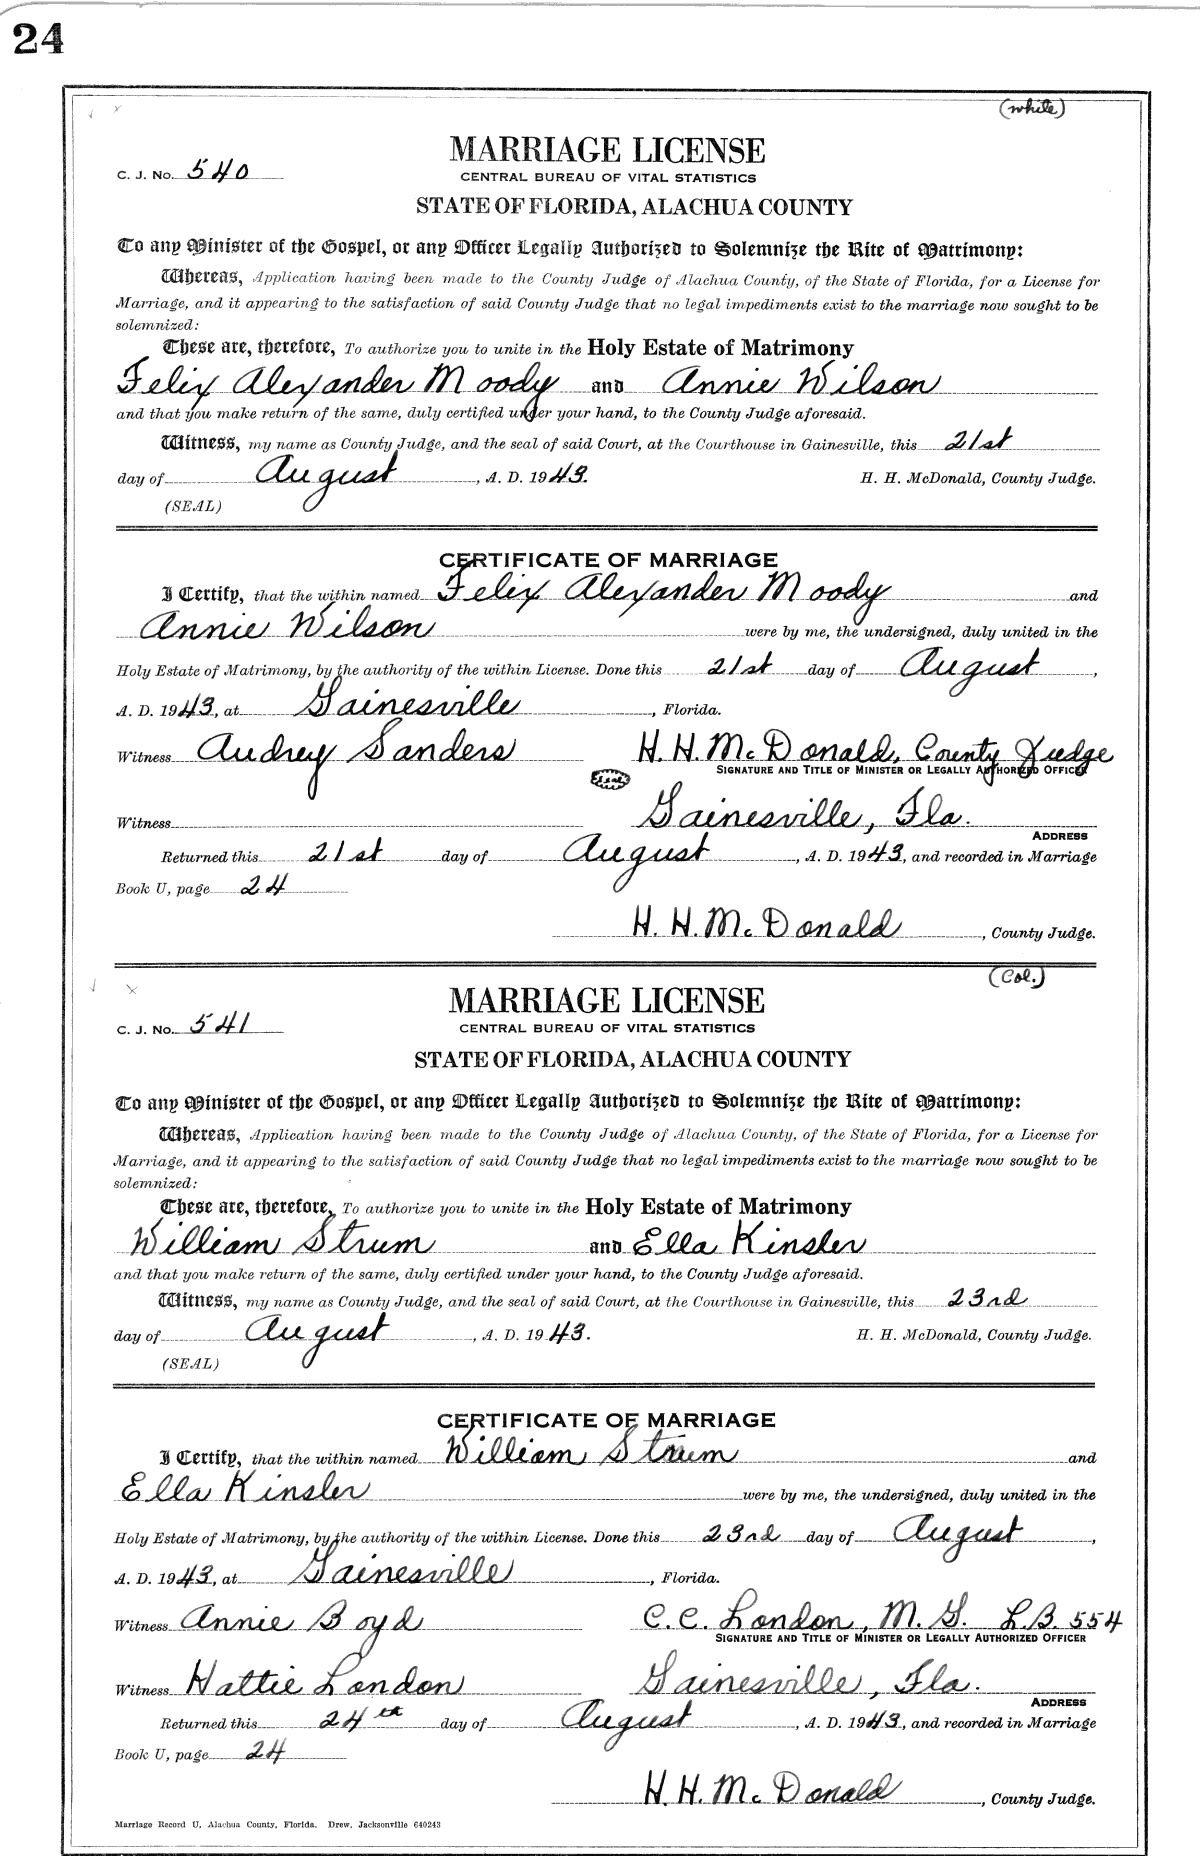 24
(white)
MARRIAGE LICENSE
C. J. No. 540
CENTRAL BUREAU OF VITAL STATISTICS
STATE OF FLORIDA, ALACHUA COUNTY
To any Minister of the Gospel, or any Officer Legally Authorized to Solemnize the Rite of Matrimony:
Whereas, Application having been made to the County Judge of Alachua County, of the State of Florida, for a License for
Marriage, and it appearing to the satisfaction of said County Judge that no legal impediments exist to the marriage now sought to be
solemnized:
These are, therefore, To authorize you to unite in the Holy Estate of Matrimony
Felix Alexander Moody and Annie Wilson
and that you make return of the same, duly certified under your hand, to the County Judge aforesaid.
Witness, my name as County Judge, and the seal of said Court, at the Courthouse in Gainesville, this 21st
day of August, A. D. 1943. H. H. McDonald, County Judge.
(SEAL)
CERTIFICATE OF MARRIAGE
I Certify, that the within named Felix Alexander Moody and
Annie Wilson were by me, the undersigned, duly united in the
Holy Estate of Matrimony, by the authority of the within License. Done this 21st day of August,
A. D. 1943, at Gainesville, Florida.
Witness Audrey Sanders H. H. McDonald, County Judge
Seal SIGNATURE AND TITLE OF MINISTER OR LEGALLY AUTHORIZED OFFICER
Witness Gainesville, Fla.
ADDRESS
Returned this 21st day of August, A. D. 1943, and recorded in Marriage
Book U, page 24
H. H. McDonald, County Judge.
(Col.)
MARRIAGE LICENSE
C. J. No. 541
CENTRAL BUREAU OF VITAL STATISTICS
STATE OF FLORIDA, ALACHUA COUNTY
To any Minister of the Gospel, or any Officer Legally Authorized to Solemnize the Rite of Matrimony:
Whereas, Application having been made to the County Judge of Alachua County, of the State of Florida, for a License for
Marriage, and it appearing to the satisfaction of said County Judge that no legal impediments exist to the marriage now sought to be
solemnized:
These are, therefore, To authorize you to unite in the Holy Estate of Matrimony
William Strum and Ella Kinsler
and that you make return of the same, duly certified under your hand, to the County Judge aforesaid.
Witness, my name as County Judge, and the seal of said Court, at the Courthouse in Gainesville, this 23rd
day of August, A. D. 1943. H. H. McDonald, County Judge.
(SEAL)
CERTIFICATE OF MARRIAGE
I Certify, that the within named William Strum and
Ella Kinsler were by me, the undersigned, duly united in the
Holy Estate of Matrimony, by the authority of the within License. Done this 23rd day of August,
A. D. 1943, at Gainesville, Florida.
Witness Annie Boyd C. C. London, M. G. L.B. 554
SIGNATURE AND TITLE OF MINISTER OR LEGALLY AUTHORIZED OFFICER
Witness Hattie London Gainesville, Fla.
ADDRESS
Returned this 24th day of August, A. D. 1943, and recorded in Marriage
Book U, page 24
H. H. McDonald, County Judge.
Marriage Record U, Alachua County, Florida. Drew, Jacksonville 640243